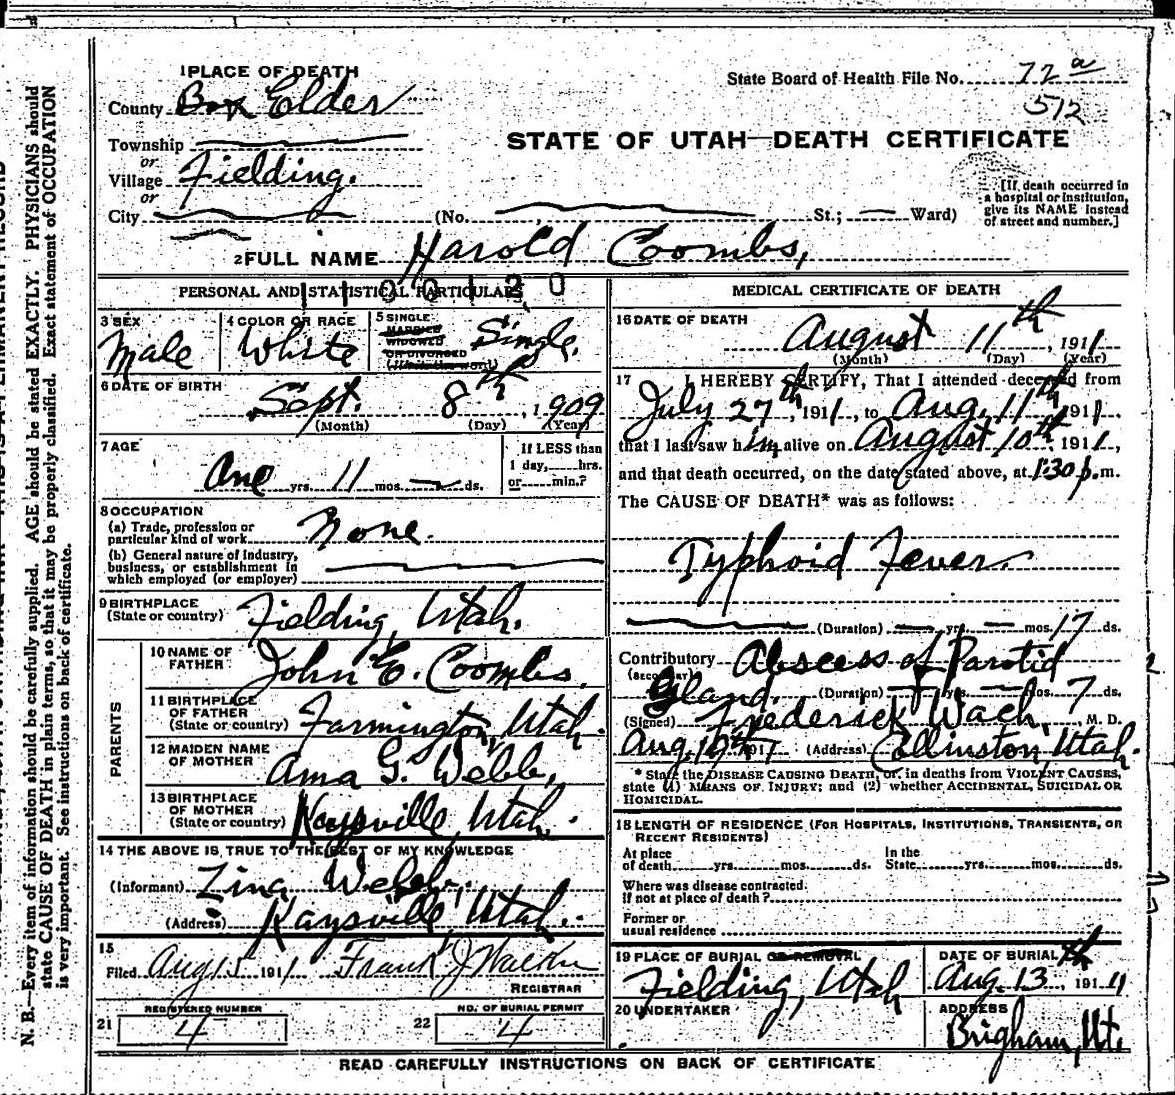 1 PLACE OF DEATH
County Box Elder
Township
or
Village Fielding.
or
City (No. St.; Ward)
State Board of Health File No. 72 a
512
STATE OF UTAH—DEATH CERTIFICATE
[If death occurred in
a hospital or institution,
give its NAME instead
of street and number.]
2 FULL NAME Harold Coombs,
PERSONAL AND STATISTICAL PARTICULARS
3 SEX
Male
4 COLOR OR RACE
White
5 SINGLE
MARRIED
WIDOWED
OR DIVORCED
(Write the word)
Single.
6 DATE OF BIRTH
Sept. 8th, 1909
(Month) (Day) (Year)
7 AGE
One yrs. 11 mos. ds.
If LESS than
1 day, hrs.
or min.?
8 OCCUPATION
(a) Trade, profession or
particular kind of work None.
(b) General nature of industry,
business, or establishment in
which employed (or employer)
9 BIRTHPLACE
(State or country) Fielding, Utah.
PARENTS
10 NAME OF
FATHER John E. Coombs.
11 BIRTHPLACE
OF FATHER
(State or country) Farmington, Utah.
12 MAIDEN NAME
OF MOTHER Ama G. Webb,
13 BIRTHPLACE
OF MOTHER
(State or country) Kaysville, Utah.
14 THE ABOVE IS TRUE TO THE BEST OF MY KNOWLEDGE
(Informant) Zina Webb.
(Address) Kaysville, Utah.
15
Filed Aug 1911 Frank J
REGISTRAR
21 REGISTERED NUMBER
4
22 NO. OF BURIAL PERMIT
4
MEDICAL CERTIFICATE OF DEATH
16 DATE OF DEATH
August 11th, 1911
(Month) (Day) (Year)
17 I HEREBY CERTIFY, That I attended deceased from
July 27th, 1911, to Aug. 11th 1911
that I last saw him alive on August 10th 1911,
and that death occurred, on the date stated above, at 1:30 p.m.
The CAUSE OF DEATH* was as follows:
Typhoid Fever.
(Duration) yrs. mos. 17 ds.
Contributory Abscess of Parotid
(SECONDARY)
Gland. (Duration) yrs. mos. 7 ds.
(Signed) Frederick Wach, M. D.
Aug. 1911 (Address) Collinston, Utah.
* State the DISEASE CAUSING DEATH, or, in deaths from VIOLENT CAUSES,
state (1) MEANS OF INJURY; and (2) whether ACCIDENTAL, SUICIDAL OR
HOMICIDAL.
18 LENGTH OF RESIDENCE (FOR HOSPITALS, INSTITUTIONS, TRANSIENTS, OR
RECENT RESIDENTS)
At place
of death yrs. mos. ds.
In the
State yrs. mos. ds.
Where was disease contracted,
if not at place of death?
Former or
usual residence
19 PLACE OF BURIAL OR REMOVAL
Fielding, Utah
DATE OF BURIAL
Aug. 13th, 1911
20 UNDERTAKER
ADDRESS
Brigham, Ut.
READ CAREFULLY INSTRUCTIONS ON BACK OF CERTIFICATE
N. B.—Every item of information should be carefully supplied. AGE should be stated EXACTLY. PHYSICIANS should
state CAUSE OF DEATH in plain terms, so that it may be properly classified. Exact statement of OCCUPATION
is very important. See instructions on back of certificate.